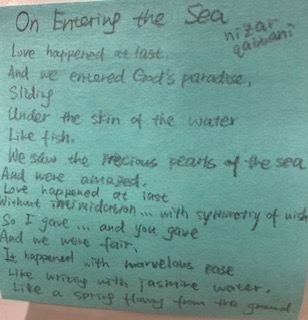 On Entering the Sea
nizar
qabbani
Love happened at last.
And we entered God's paradise,
Sliding
Under the skin of the water
Like fish.
We saw the precious pearls of the sea
And were amazed.
Love happened at last
Without intimidation... with symmetry of wish
So I gave... and you gave
And we were fair.
It happened with marvelous ease
Like writing with jasmine water,
Like a spring flowing from the ground